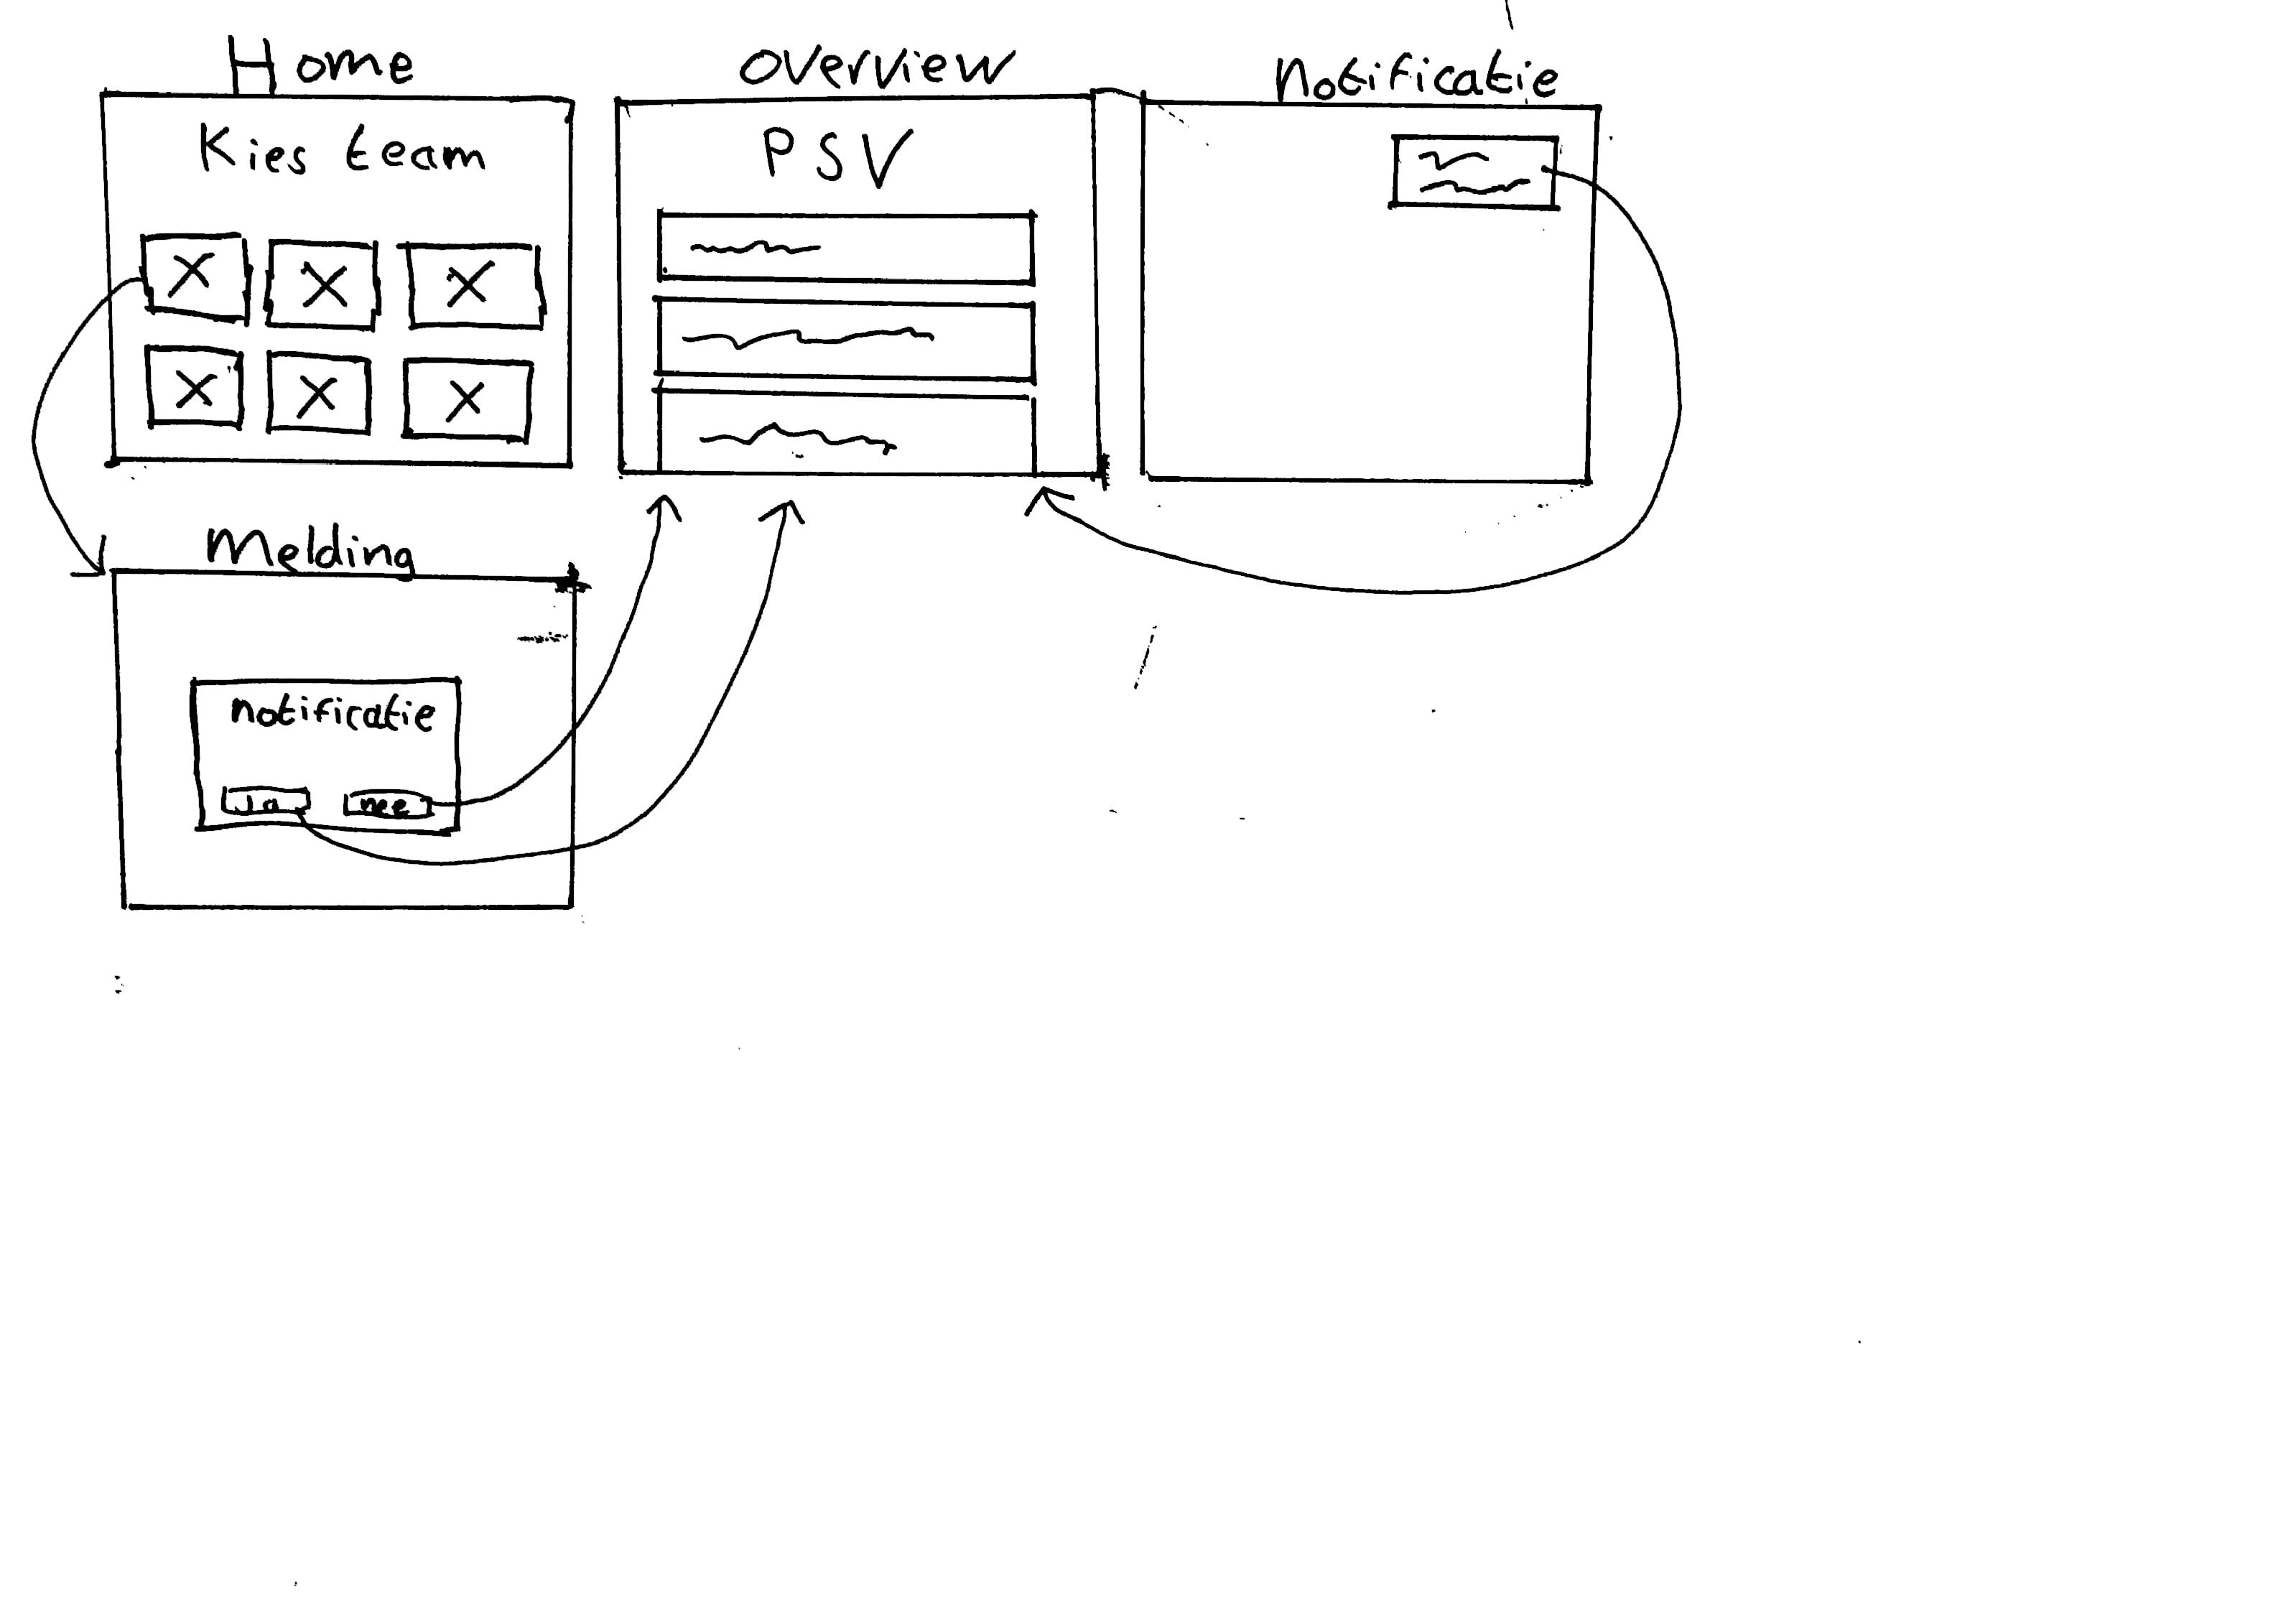 Home
Kies team
Overview
PSV
Notificatie
Melding
Notificatie
Ja
nee